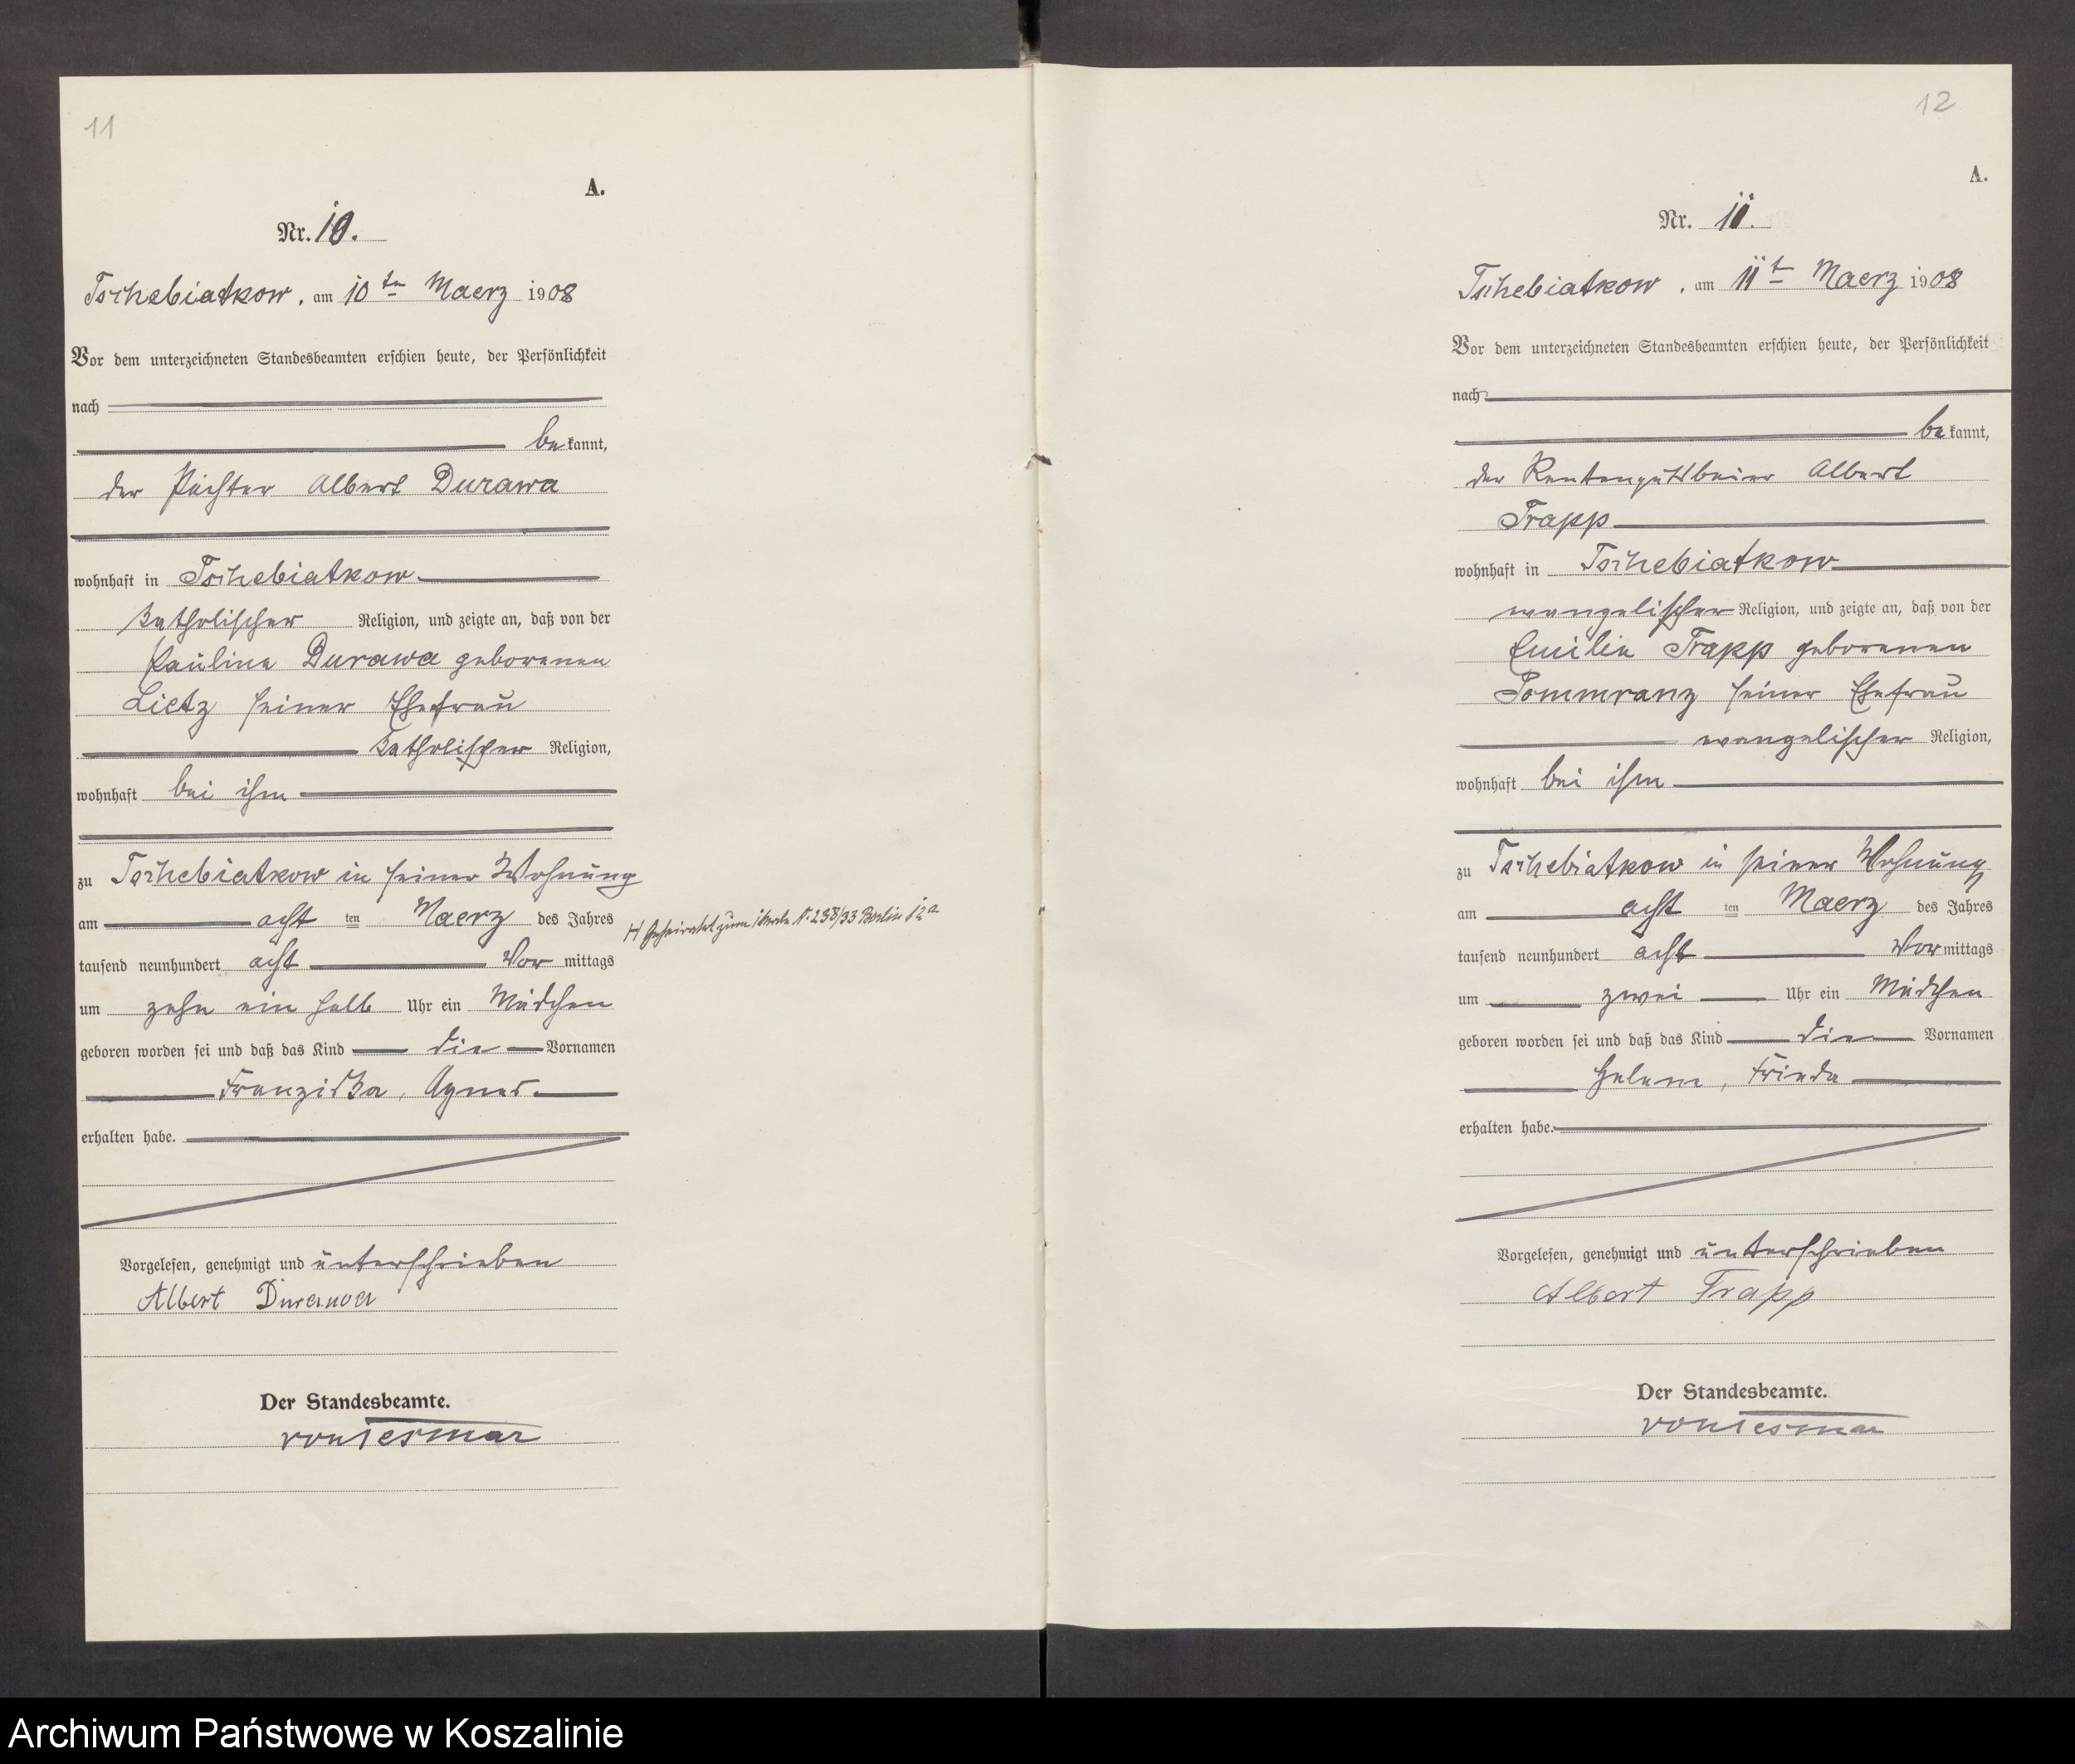 11
A.
Nr. 10.
Tschebiatkow, am 10ten Maerz 1908
Vor dem unterzeichneten Standesbeamten erschien heute, der Persönlichkeit
nach
bekannt,
der Pächter Albert Durawa
wohnhaft in Tschebiatkow
katholischer Religion, und zeigte an, daß von der
Pauline Durawa geborenen
Lietz seiner Ehefrau
katholischer Religion,
wohnhaft bei ihm
zu Tschebiatkow in seiner Wohnung
am acht ten Maerz des Jahres
tausend neunhundert acht Vormittags
um zehn ein halb Uhr ein Mädchen
geboren worden sei und daß das Kind die Vornamen
Franziska, Agnes.
erhalten habe.
Vorgelesen, genehmigt und unterschrieben
Albert Durawa
Der Standesbeamte.
von Tesmar
H Geheiratet zum N: 238/33 Berlin 12a
12
A.
Nr. 11.
Tschebiatkow, am 11t Maerz 1908
Vor dem unterzeichneten Standesbeamten erschien heute, der Persönlichkeit
nach
bekannt,
der Rentengutsbesitzer Albert
Trapp
wohnhaft in Tschebiatkow
evangelischer Religion, und zeigte an, daß von der
Emilie Trapp geborenen
Pommranz seiner Ehefrau
evangelischer Religion,
wohnhaft bei ihm
zu Tschebiatkow in seiner Wohnung
am acht ten Maerz des Jahres
tausend neunhundert acht Vormittags
um zwei Uhr ein Mädchen
geboren worden sei und daß das Kind die Vornamen
Helene, Frieda
erhalten habe.
Vorgelesen, genehmigt und unterschrieben
Albert Trapp
Der Standesbeamte.
von Tesmar
Archiwum Państwowe w Koszalinie